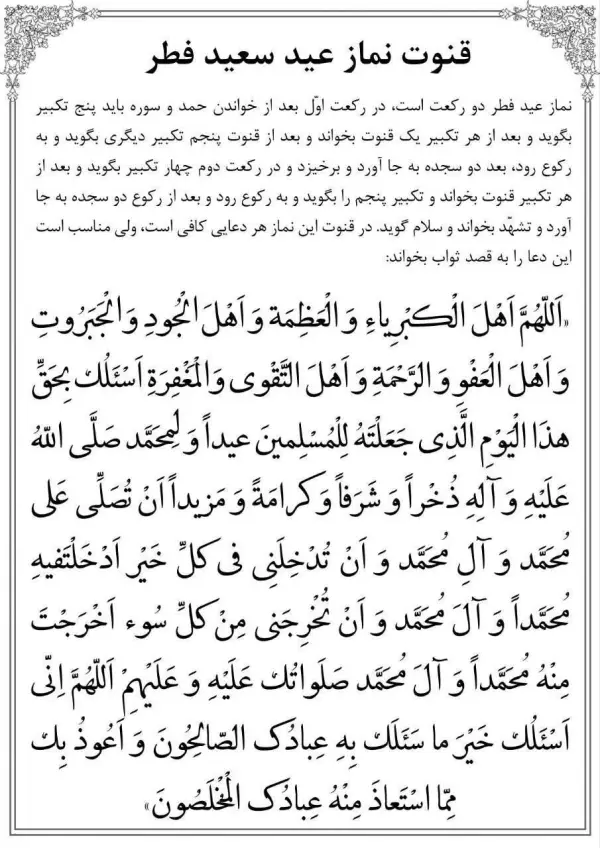 قنوت نماز عید سعید فطر
نماز عید فطر دو رکعت است، در رکعت اوّل بعد از خواندن حمد و سوره باید پنج تکبیر
بگوید و بعد از هر تکبیر یک قنوت بخواند و بعد از قنوت پنجم تکبیر دیگری بگوید و به
رکوع رود، بعد دو سجده به جا آورد و برخیزد و در رکعت دوم چهار تکبیر بگوید و بعد از
هر تکبیر قنوت بخواند و تکبیر پنجم را بگوید و به رکوع رود و بعد از رکوع دو سجده به جا
آورد و تشهّد بخواند و سلام گوید. در قنوت این نماز هر دعایی کافی است، ولی مناسب است
این دعا را به قصد ثواب بخواند:
«اَللّهُمَّ اَهْلَ الْكِبْرِیاءِ وَ الْعَظَمَة وَ اَهْلَ الْجُودِ وَ الْجَبَرُوتِ
وَ اَهْلَ الْعَفْوِ وَ الرَّحْمَةِ وَ اَهْلَ التَّقْوی وَ الْمَغْفِرَةِ اَسْئَلُكَ بِحَقِّ
هذَا الْیَوْمِ الَّذِی جَعَلْتَهُ لِلْمُسْلِمینَ عیداً وَ لِمحَمَّد صَلَّی اللّهُ
عَلَیْهِ وَ آلِهِ ذُخْراً وَ شَرَفاً وَ کَرامَةً وَ مَزیداً اَنْ تُصَلِّی عَلی
مُحَمَّد وَ آلِ مُحَمَّد وَ اَنْ تُدْخِلَنِی فی کلِّ خَیْر اَدْخَلْتَفیهِ
مُحَمَّداً وَ آلَ مُحَمَّد وَ اَنْ تُخْرِجَنی مِنْ کلِّ سُوء اَخْرَجْتَ
مِنْهُ مُحَمَّداً وَ آلَ مُحَمَّد صَلَواتُكَ عَلَیْهِ وَ عَلَیْهِمْ اَللّهُمَّ اِنّی
اَسْئَلُكَ خَیْرَ ما سَئَلَكَ بِهِ عِبادُکَ الصّالِحُونَ وَ اَعُوذُ بِكَ
مِمّا اسْتَعاذَ مِنْهُ عِبادُکَ الْمُخْلَصُونَ»